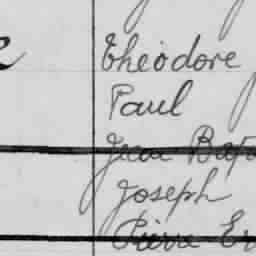 Théodore
Paul
Jean Bap
Joseph
Pierre Er